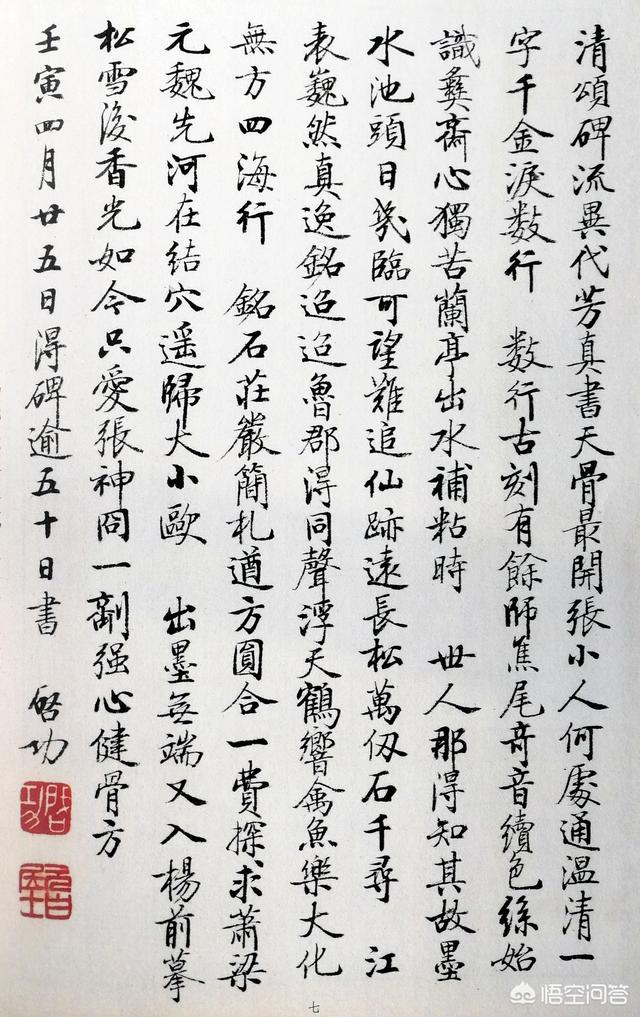 清頌碑流異代芳真書天骨最開張小人何處通温清一
字千金淚数行　数行古刻有餘師焦尾奇音續色絲始
識彝齋心獨苦蘭亭出水補粘時　世人那得知其故墨
水池頭日幾臨可望難追仙跡遠長松萬仭石千尋　江
表巍然真逸銘迢迢魯郡得同聲浮天鶴響禽魚樂大化
無方四海行　銘石莊嚴簡札遒方圓合一費探求蕭梁
元魏先河在結穴遥歸大小歐　出墨無端又入楊前摹
松雪後香光如今只愛張神冏一劑强心健骨方
壬寅四月廿五日得碑逾五十日書　啓功
啓功
元白
七
悟空问答